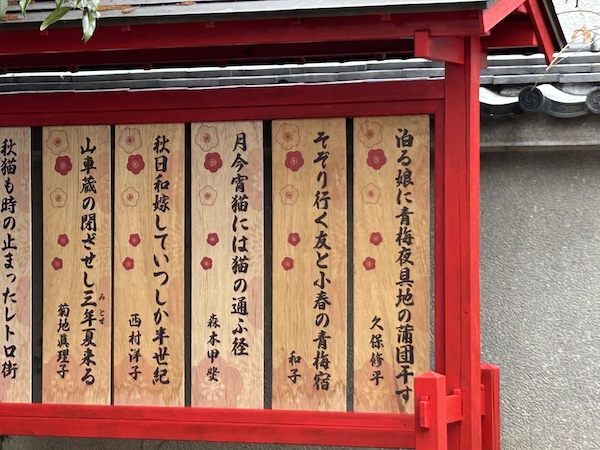 泊る娘に青梅夜具地の蒲団干す
久保修平
そぞり行く友と小春の青梅宿
和子
月今宵猫には猫の通ふ径
森本甲燮
秋日和嫁していつしか半世紀
西村洋子
山車蔵の閉ざせし三年夏来る
みとせ
菊地眞理子
秋猫も時の止まったレトロ街